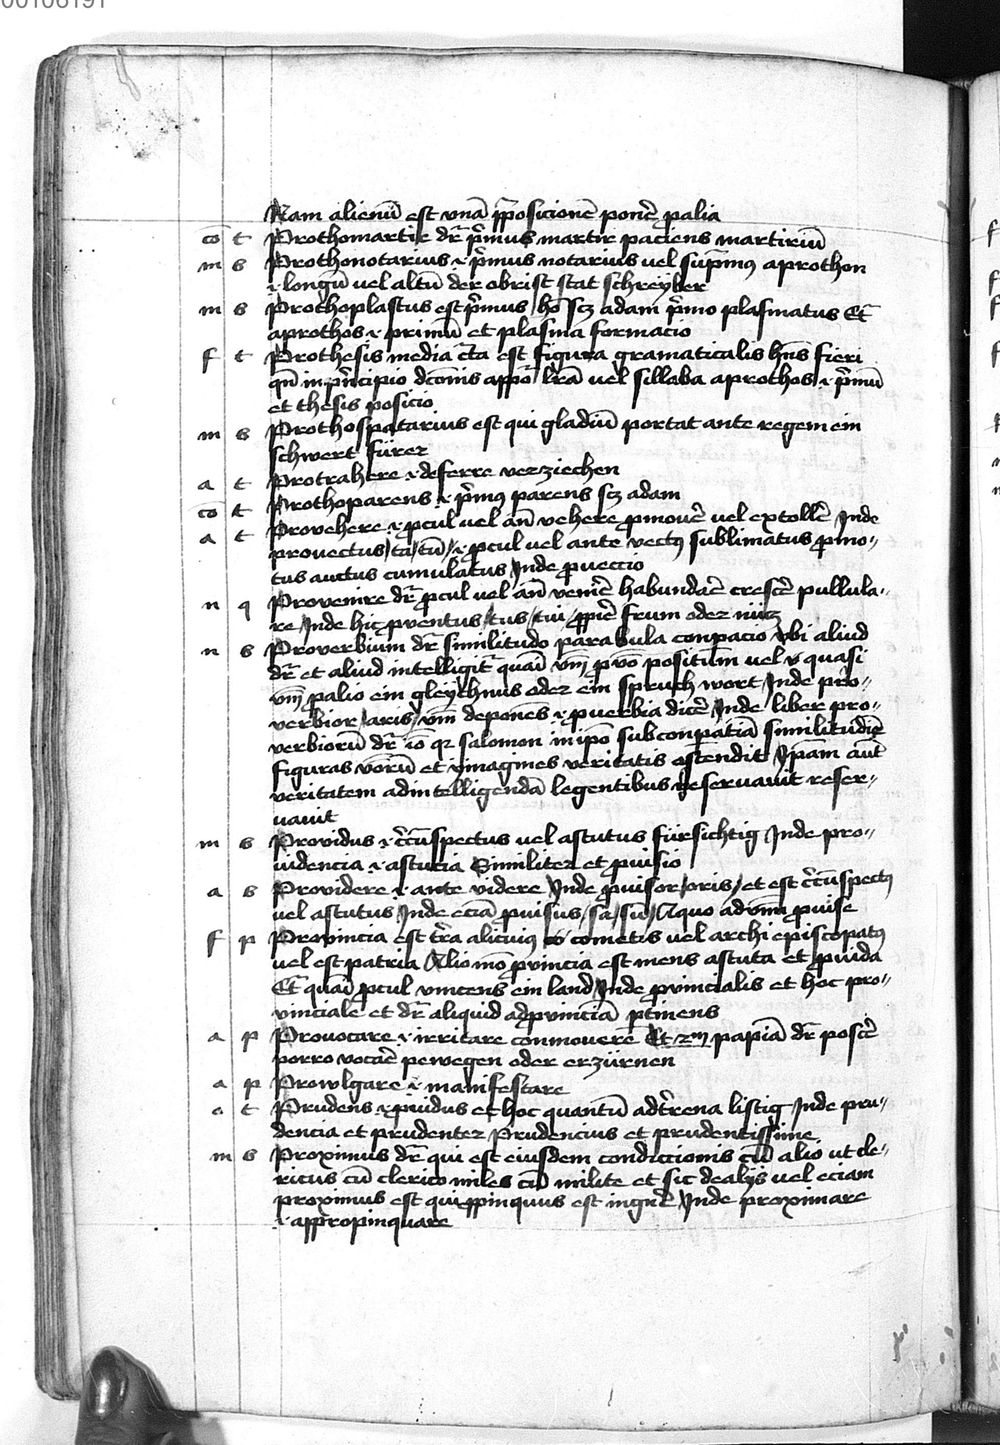 00106191
Nam alienū est vnā ꝓposicionē ponē palia
cō t Prothomartir dr̄ pͥmus martir paciens martiriū
m s Prothonotarius .i. pͥmus notarius vel supͥmꝰ aprothon
.i. longū vel altū der obrist stat schreyber
m s Prothoplastus est pͥmus hō scꝫ adam pͥmo plasmatus Et
aprothos .i. primū et plasma formacio
f t Prothesis media cͣta est figura gramaticalis hn̄s fieri
qn̄ in pͥncipio dcōnis appōͬ lr̄a vel sillaba aprothos .i. pͥmū
et thesis posicio
m s Prothospatarius est qui gladiū portat ante regem ein
schwert fürer
a t Protrahere .i. deferre verziechen
cō t Prothoparens .i. pͥmꝰ parens scꝫ adam
a t Provehere .i. ꝓcul vel an̄ vehere ꝓmovē vel extollē Inde
provectus / ta / tū / .i. ꝓcul vel ante vectꝰ sublimatus ꝓmo//
tus auctus cumulatus Inde ꝓueccio
n q Provenire dr̄ ꝓcul vel an̄ venīē habundāē crescē pullula//
re Inde hic ꝓventus / tus / tui ꝓpīē frum oder nücz
n s Proverbium dr̄ similitudo parabula conpacio vbi aliud
dr̄ et aliud intelligitͬ quāi vm̄ ꝓ vō positum vel .i. quasi
vm̄ palio ein gleychnus oder ein spruch wort Inde pro//
verbior / aris / vm̄ deponēs .i. ꝓuerbia dicē Inde liber pro//
verbiorū dr̄ iō qꝛ salomon in ipō sub conpatiā similitudīē
figuras vōrū et ymagines veritatis ostendit Ipsām aūt
veritatem ad intelligendā legentibus reservauit reser//
uauit
m s Providus .i. cͥcūspectus vel astutus fürsichtig Inde pro//
uidencia .i. astucia Similiter et ꝓuisio
a s Providere .i. ante videre Inde ꝓuisor / oris / et est cͥcūspectꝰ
vel astutus Inde eciā ꝓuisus / sa / sū / A quo adv̄m ꝓuise
f p Provincia est tr̄a alicuiꝰ cometis vel archiepiscopatꝰ
vel est patria Alio mō ꝓvincia est mens astuta et ꝓuida
Et quāi ꝓcul vincens ein land Inde ꝓvincialis et hoc pro//
vinciale et dr̄ aliquid ad ꝓvinciā ptinens
a p Provocare .i. irritare conmouerē Et 2m̄ papiā dr̄ poscē
porro vocāē pewegen oder erzürnen
a p Prowlgare .i. manifestare
o t Prudens .i. ꝓuidus et hoc quantū ad tr̄rena listig Inde pru//
dencia et prudenter Prudencius et prudentissime
m s Proximus dr̄ qui est eiusdem condiccionis cū alio ut cle//
ricus cū clerico miles cū milite et sic de alijs vel eciam
proximus est qui ꝓpinquus est in gnͤē Inde proximare
.i. appropinquare